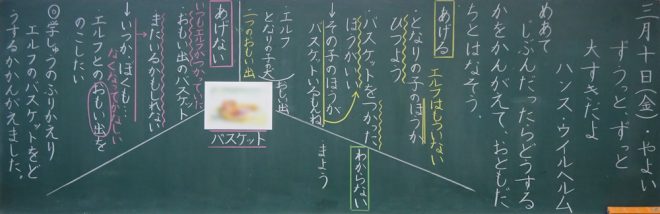 三月十日(金)・やよい
ずうっと、ずっと
大すきだよ
ハンス・ウイルヘルム
めあて
じぶんだったらどうする
かをかんがえて、おともだ
ちとはなそう。
あげる
エルフはもういない
・となりの子のほうが
ひつよう
・バスケットをつかった
ほうがいい
→その子のほうが
バスケットいるもね
まよう
わからない
おもい出
・エルフ
となりの子の犬
二つのおもい出
バスケット
あげない
いつもエルフがつかってた
おもい出のバスケット
またいるかもしれない
→いつか、ぼくも
なくなってかなしい
エルフとのおもい出を
のこしたい
◎学しゅうのふりかえり
エルフのバスケットをど
うするかかんがえました。